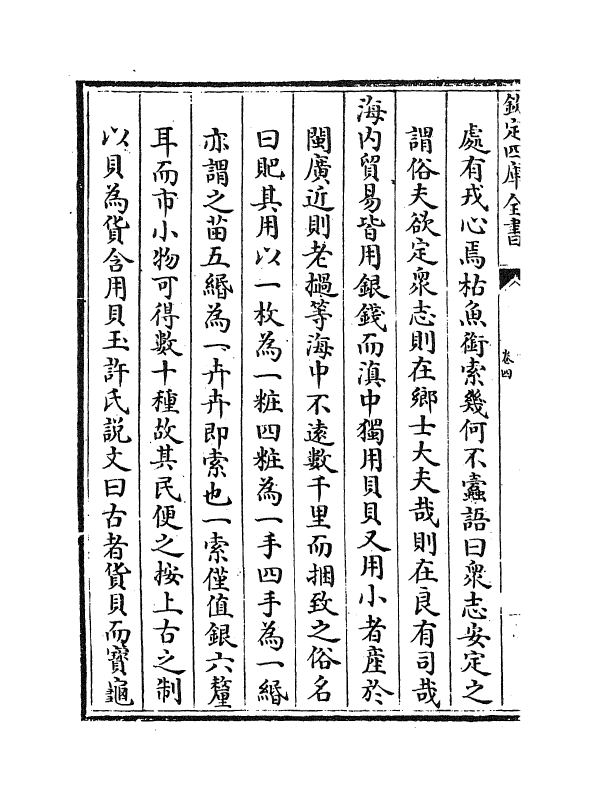 欽定四庫全書
卷四
處有戎心焉枯魚銜索幾何不蠹語曰衆志安定之
謂俗夫欲定衆志則在鄉士大夫哉則在良有司哉
海内貿易皆用銀錢而滇中獨用貝貝又用小者產於
閩廣近則老撾等海中不遠數千里而捆致之俗名
曰𧴩其用以一枚為一粧四粧為一手四手為一緡
亦謂之苗五緡為一卉卉即索也一索僅值銀六釐
耳而市小物可得數十種故其民便之按上古之制
以貝為貨含用貝玉許氏説文曰古者貨貝而寳龜